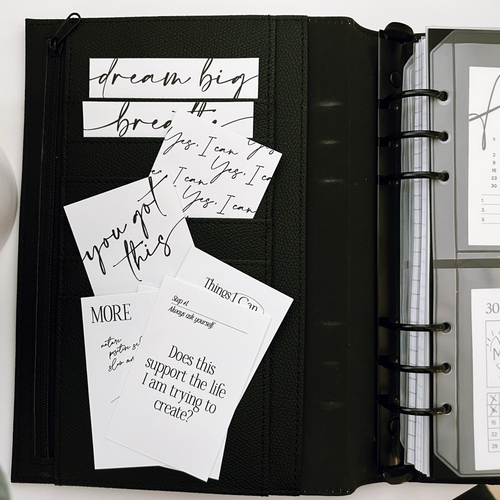 dream big
Yes, I can
Yes, I can
Yes, I can
Yes, I can
you got
this
Things I Can
MORE
nature
Step #1
Always ask yourself
Does this
support the life
I am trying to
create?
30